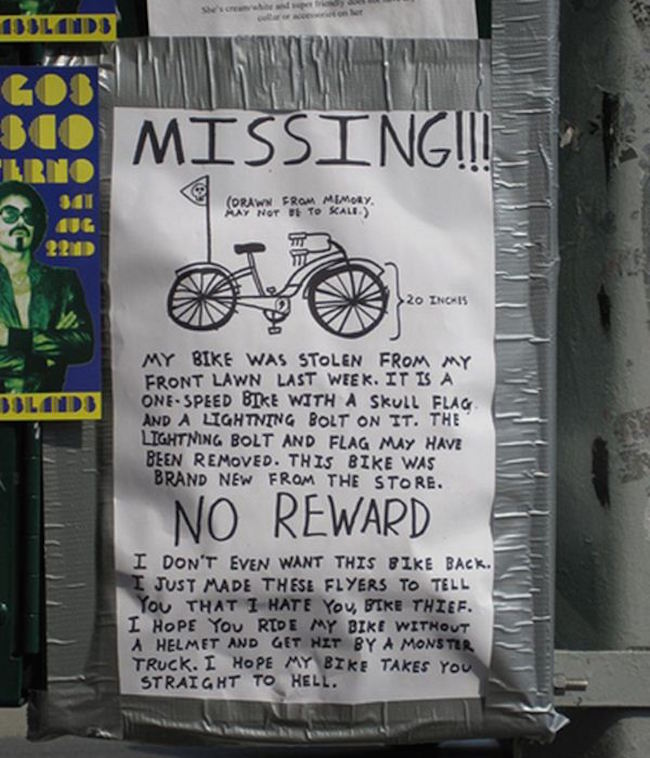 She's cream/white and super friendly does not have any
collar or accessories on her
MISSING!!!
(DRAWN FROM MEMORY.
MAY NOT BE TO SCALE.)
20 INCHES
MY BIKE WAS STOLEN FROM MY
FRONT LAWN LAST WEEK. IT IS A
ONE-SPEED BIKE WITH A SKULL FLAG
AND A LIGHTNING BOLT ON IT. THE
LIGHTNING BOLT AND FLAG MAY HAVE
BEEN REMOVED. THIS BIKE WAS
BRAND NEW FROM THE STORE.
NO REWARD
I DON'T EVEN WANT THIS BIKE BACK.
I JUST MADE THESE FLYERS TO TELL
YOU THAT I HATE YOU, BIKE THIEF.
I HOPE YOU RIDE MY BIKE WITHOUT
A HELMET AND GET HIT BY A MONSTER
TRUCK. I HOPE MY BIKE TAKES YOU
STRAIGHT TO HELL.
SAT
AUG
22ND